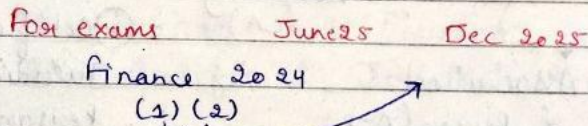 For exams June25 Dec 2025
finance 2024
(1) (2)